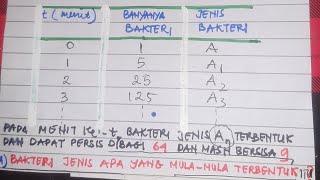 t (menit) BANYAKNYA BAKTERI JENIS BAKTERI
0 1 A
1 5 A1
2 25 A2
3 125 A3
PADA MENIT KE-t, BAKTERI JENIS An TERBENTUK
DAN DAPAT PERSIS DIBAGI 64 DAN MASIH BERSISA 9,
BAKTERI JENIS APA YANG MULA-MULA TERBENTUK